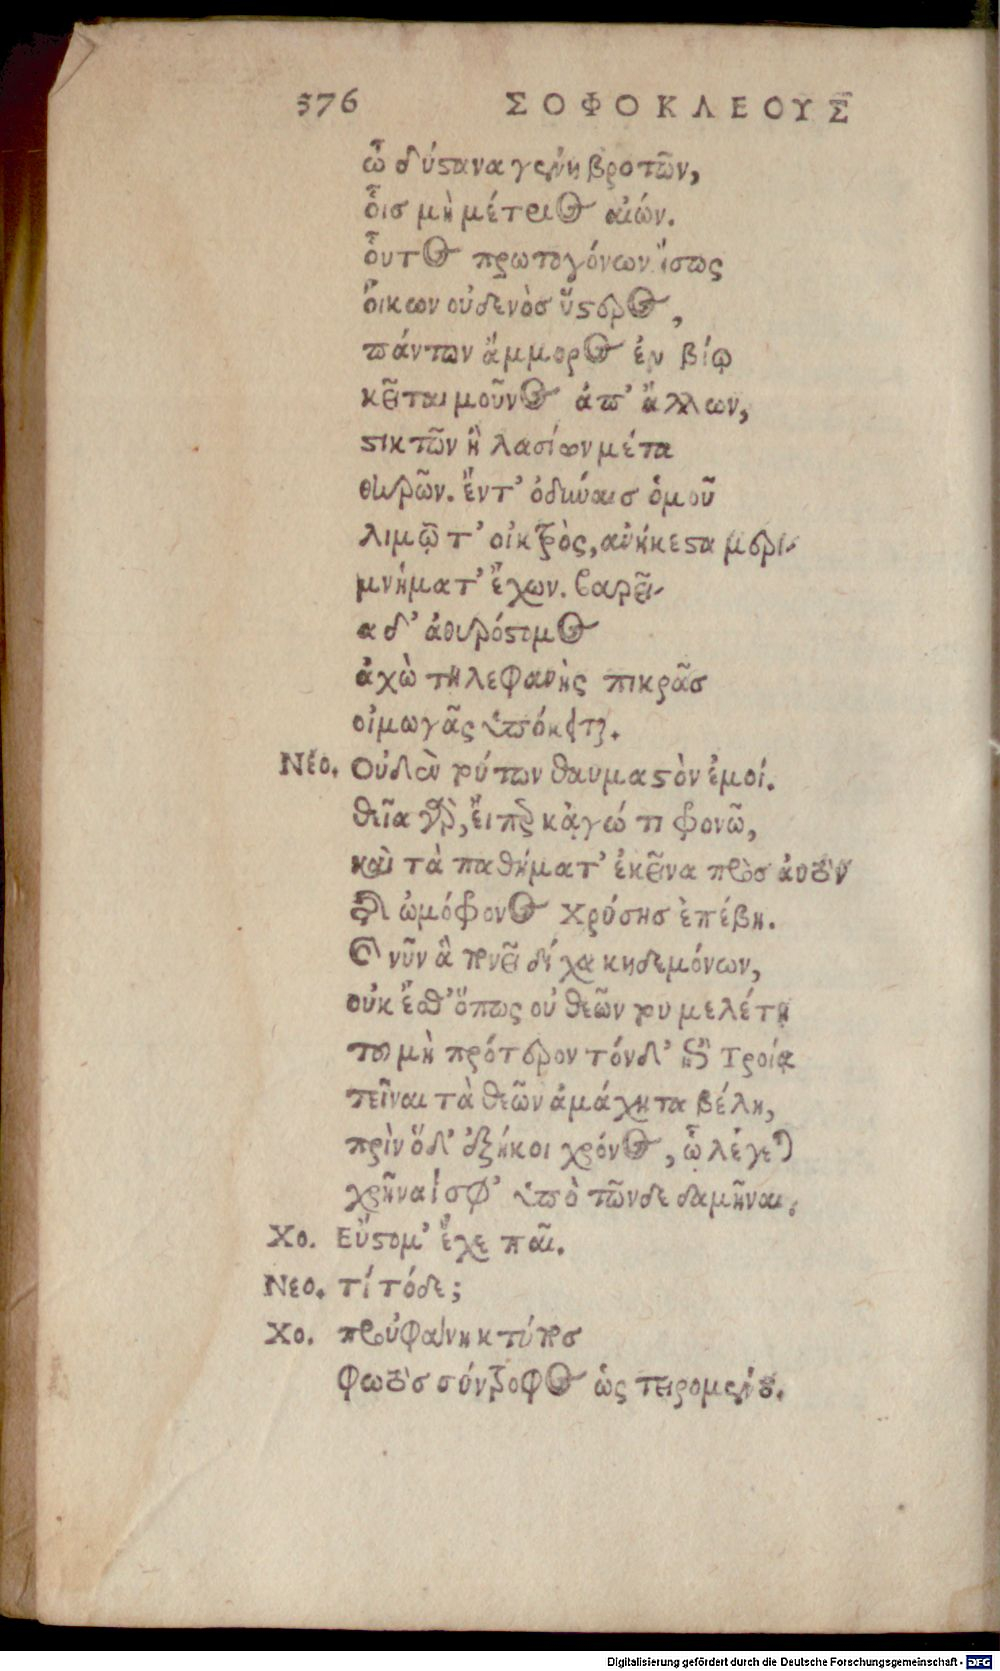 376 ΣΟΦΟΚΛΕΟΥΣ
ὦ δύστανα γένη βροτῶν,
οἷσ μὴ μέτριος αἰών.
οὗτος πρωτογόνων ἴσως
οἴκων οὐδενὸσ ὕστερος,
πάντων ἄμμορος ἐν βίῳ
κεῖται μοῦνος ἀπ' ἄλλων,
στικτῶν ἢ λασίων μέτα
θηρῶν. ἔντ' ὀδύναισ ὁμοῦ
λιμῷ τ' οἰκτρὸς, ἀνήκεστα μερι-
μνήματ' ἔχων. βαρεῖ-
α δ' ἀθυρόστομος
ἀχὼ τηλεφανὴς πικρᾶσ
οἰμωγᾶς ὑπόκειται.
Νέο. Οὐδὲν τούτων θαυμαστὸν ἐμοί.
θεῖα γὰρ, εἴπερ κᾀγώ τι φρονῶ,
καὶ τὰ παθήματ' ἐκεῖνα πρὸσ αὐτὸν
τῆσ ὠμόφρονος Χρύσησ ἐπέβη.
καὶ νῦν ἃ πονεῖ δίχα κηδεμόνων,
οὐκ ἔσθ' ὅπως οὐ θεῶν του μελέτῃ
τοῦ μὴ πρότερον τόνδ' ἐπὶ Τροίᾳ
τεῖναι τὰ θεῶν ἀμάχητα βέλη,
πρὶν ὅδ' ἐξήκοι χρόνος, ᾧ λέγεται
χρῆναί σφ' ὑπὸ τῶνδε δαμῆναι.
Χο. Εὔστομ' ἔχε παῖ.
Νεο. τί τόδε;
Χο. προὐφαίνη κτύποσ
φωτὸσ σύντροφος ὡς τειρομένου.
Digitalisierung gefördert durch die Deutsche Forschungsgemeinschaft - DFG